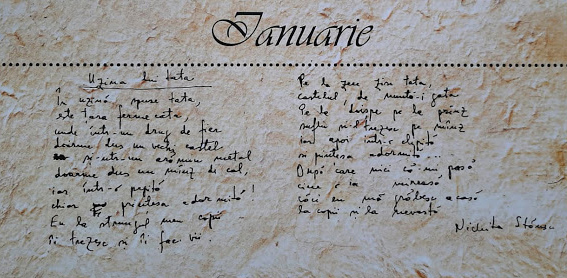 Ianuarie
Uzina lui tata
În uzină, spuse tata,
este țara fermecată,
unde într-un drug de fier
doarme dus un vechi castel
și-ntr-un arămiu metal
doarme dus un mînz de cal,
iar într-o pepită
chiar prințesa adormită!
Eu la strungul meu copii
îi trezesc și îi fac vii.
Pe la zece zise tata,
castelul, de muncă-i gata
Pe la doișpe pe la prînz
suflu și-l trezesc pe mînz
iar apoi într-o clipită
și prințesa adormită...
După care nici că-mi pasă
cine o ia mireasă
căci eu mă grăbesc acasă
la copii și la nevastă
Nichita Stănescu